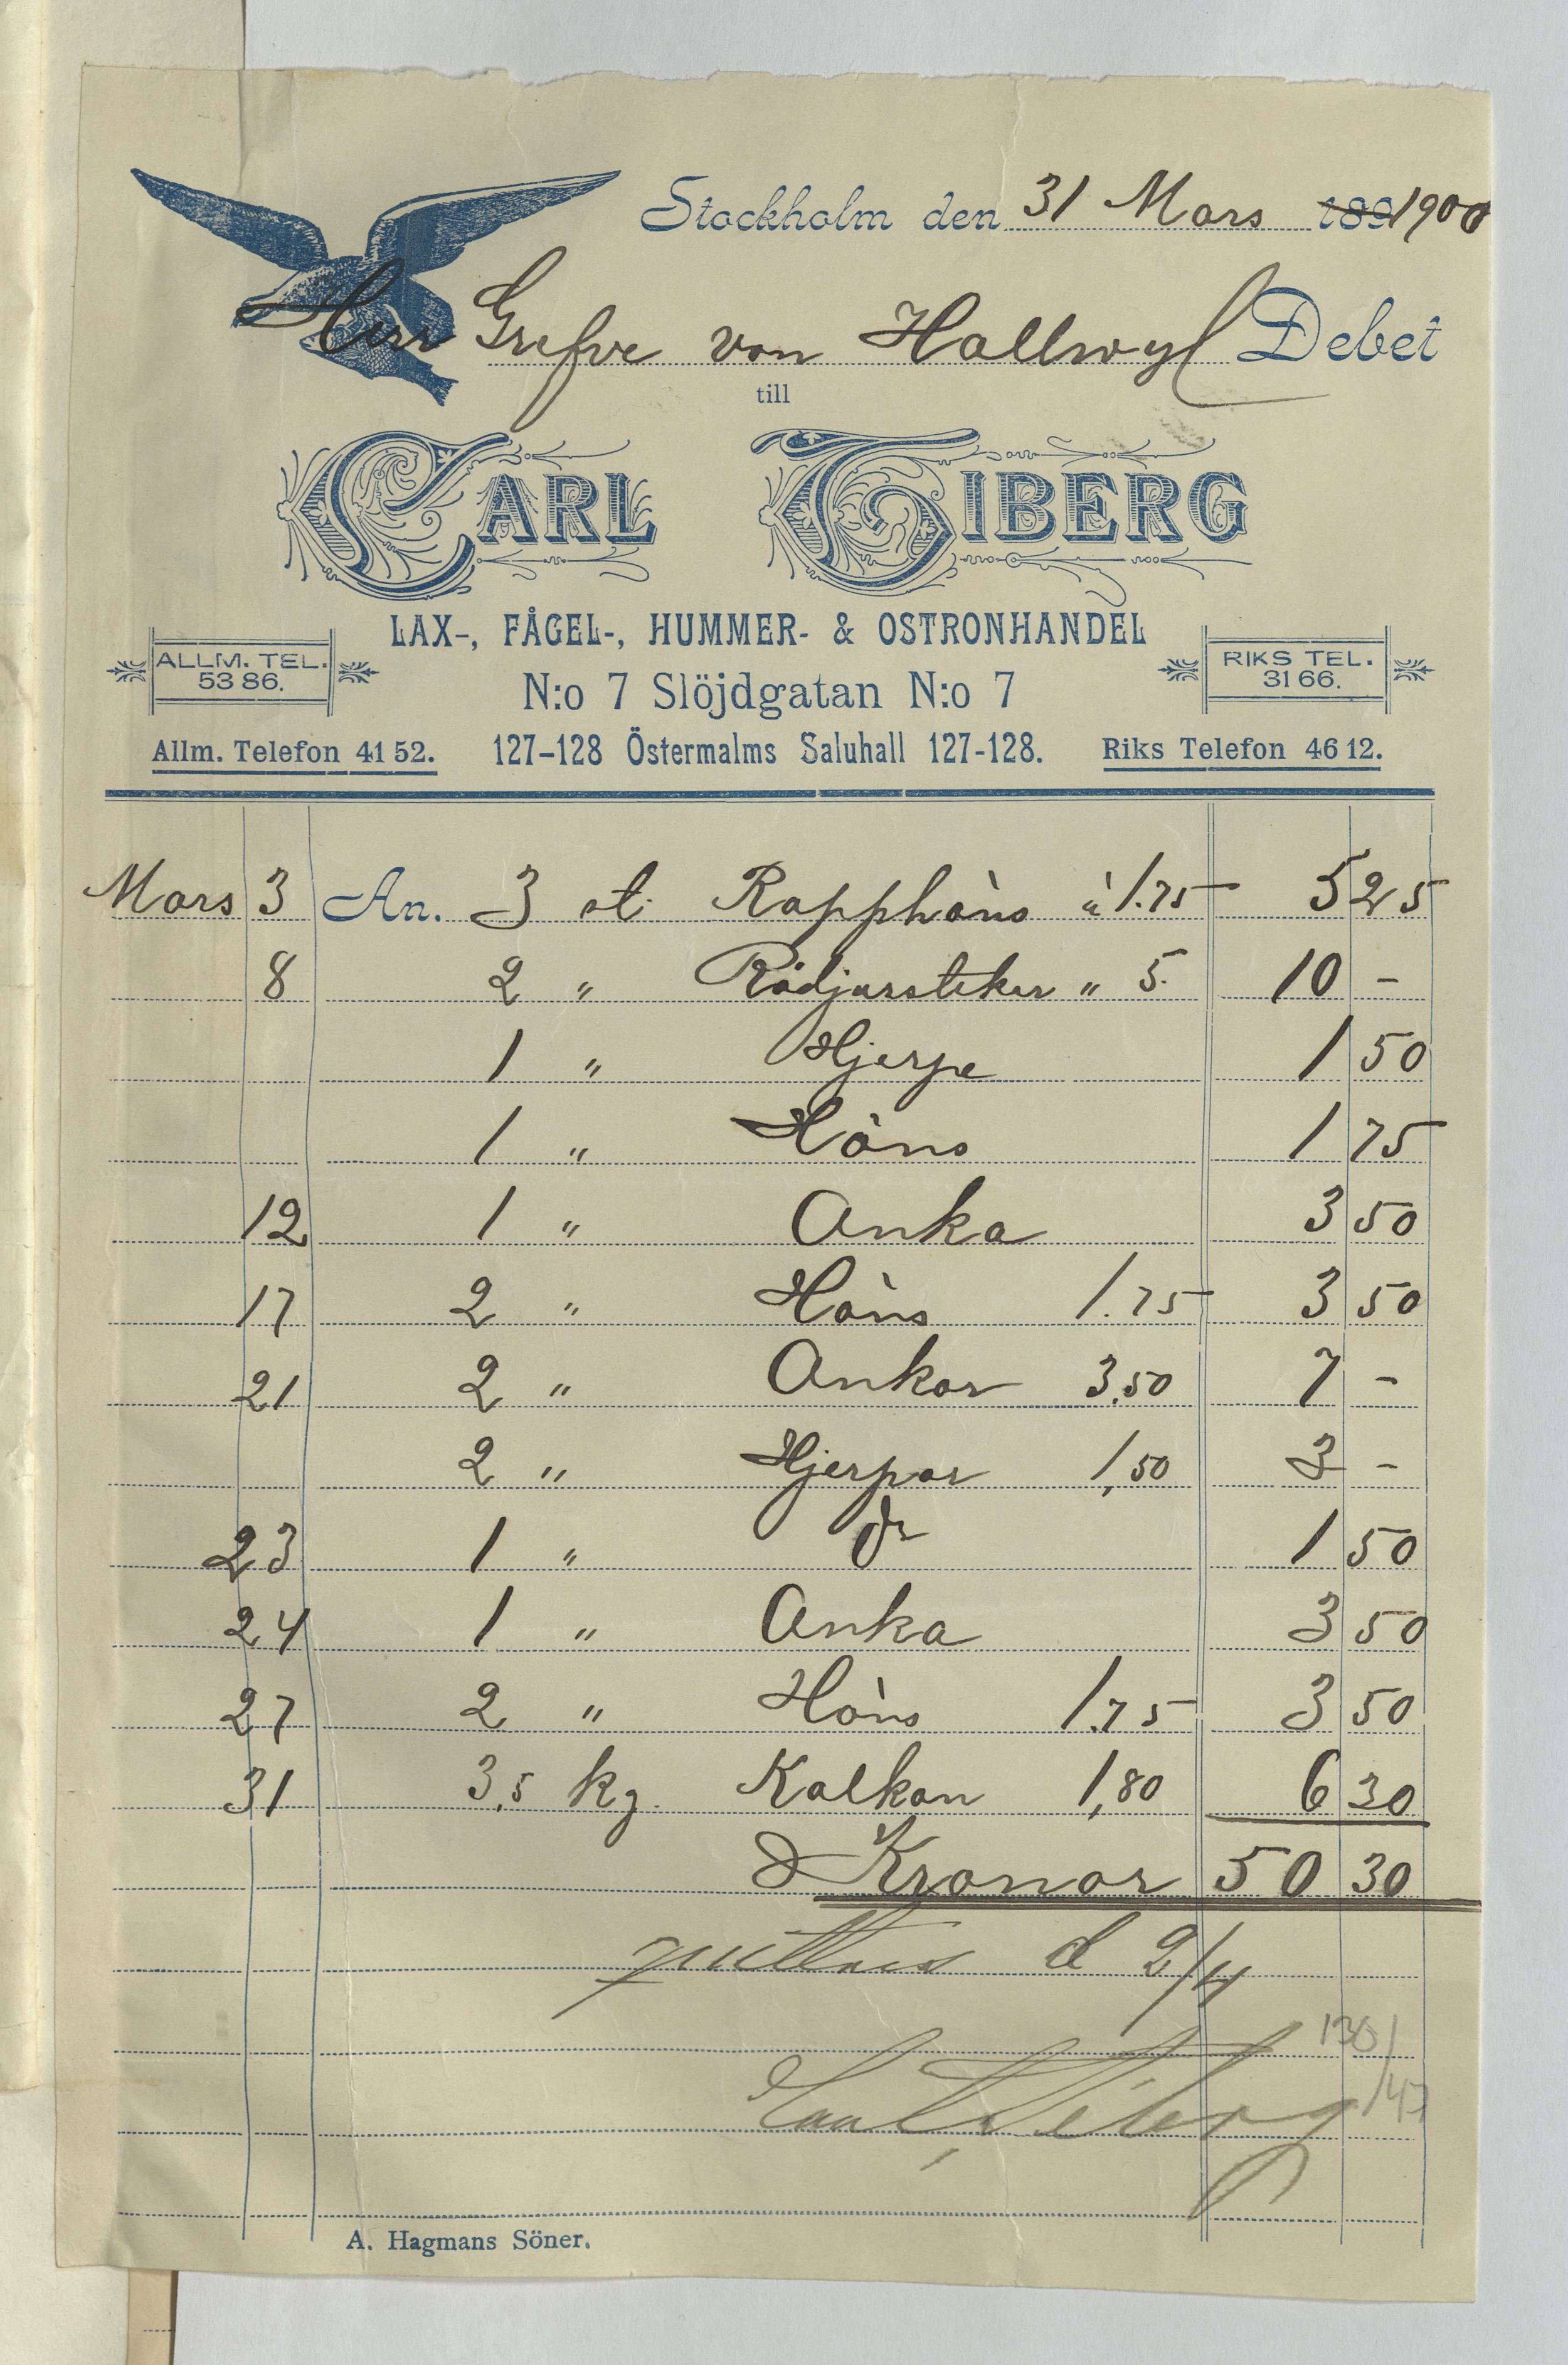 Stockholm den 31 Mars 189 1900
Herr Grefve von Hallwyl Debet
till
CARL TIBERG
LAX-, FÅGEL-, HUMMER- & OSTRONHANDEL
ALLM. TEL. 53 86.
N:o 7 Slöjdgatan N:o 7
RIKS TEL. 31 66.
Allm. Telefon 41 52. 127-128 Östermalms Saluhall 127-128. Riks Telefon 46 12.
Mars 3 An. 3 st. Rapphöns à 1.75 5 25
8 2 " Rådjursteker " 5. 10 -
1 " Hjerpe 1 50
1 " Höns 1 75
12 1 " Anka 3 50
17 2 " Höns 1.75 3 50
21 2 " Ankor 3,50 7 -
2 " Hjerpar 1,50 3 -
23 1 " do 1 50
24 1 " Anka 3 50
27 2 " Höns 1.75 3 50
31 3,5 kg. Kalkon 1,80 6 30
Kronor 50 30
quitteras d 2/4
Carl Tiberg
A. Hagmans Söner.